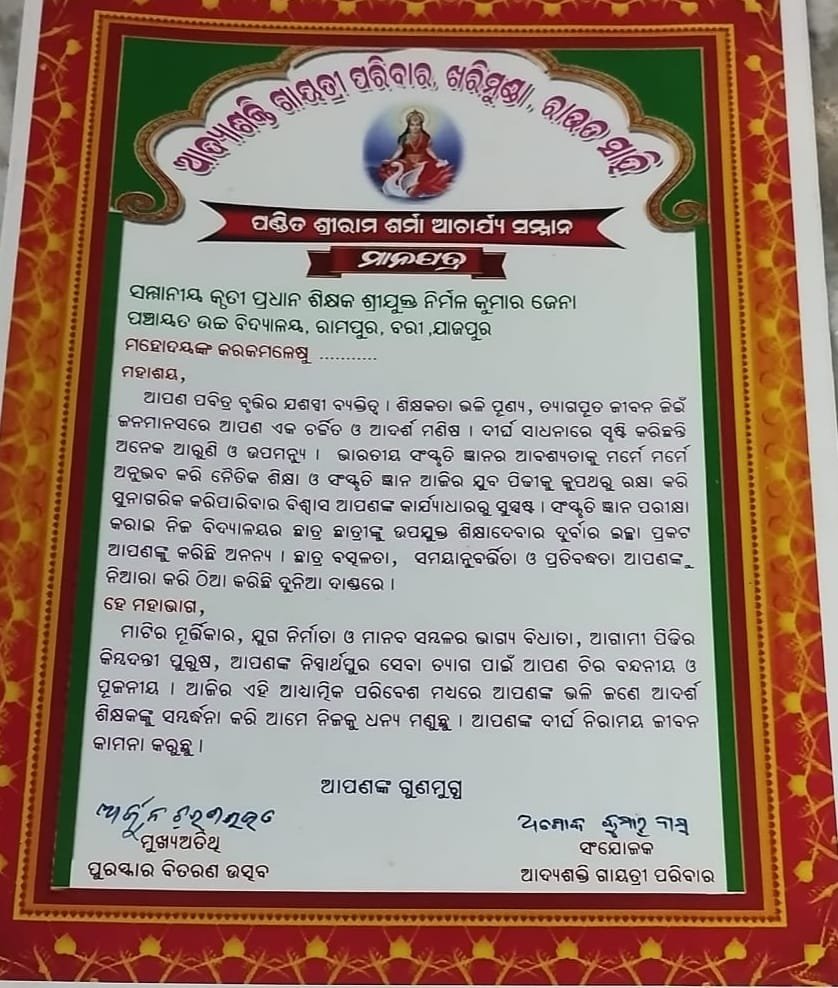 ଆଦ୍ୟାଶକ୍ତି ଗାୟତ୍ରୀ ପରିବାର, ଖରିମୁଣ୍ଡା, ରାଉତ ସାହି
ପଣ୍ଡିତ ଶ୍ରୀରାମ ଶର୍ମା ଆଚାର୍ଯ୍ୟ ସମ୍ମାନ
ମାନପତ୍ର
ସମ୍ମାନୀୟ କୃତୀ ପ୍ରଧାନ ଶିକ୍ଷକ ଶ୍ରୀଯୁକ୍ତ ନିର୍ମଳ କୁମାର ଜେନା
ପଞ୍ଚାୟତ ଉଚ୍ଚ ବିଦ୍ୟାଳୟ, ରାମପୁର, ବରୀ ,ଯାଜପୁର
ମହୋଦୟଙ୍କ କରକମଳେଷୁ ...........
ମହାଶୟ,
ଆପଣ ପବିତ୍ର ବୃତ୍ତିର ଯଶସ୍ୱୀ ବ୍ୟକ୍ତିତ୍ୱ । ଶିକ୍ଷକତା ଭଳି ପୂଣ୍ୟ, ତ୍ୟାଗପୂତ ଜୀବନ ଜିଇଁ
ଜନମାନସରେ ଆପଣ ଏକ ଚର୍ଚ୍ଚିତ ଓ ଆଦର୍ଶ ମଣିଷ । ଦୀର୍ଘ ସାଧନାରେ ସୃଷ୍ଟି କରିଛନ୍ତି
ଅନେକ ଆରୁଣି ଓ ଉପମନ୍ୟୁ । ଭାରତୀୟ ସଂସ୍କୃତି ଜ୍ଞାନର ଆବଶ୍ୟତାକୁ ମର୍ମେ ମର୍ମେ
ଅନୁଭବ କରି ନୈତିକ ଶିକ୍ଷା ଓ ସଂସ୍କୃତି ଜ୍ଞାନ ଆଜିର ଯୁବ ପିଢୀକୁ କୁପଥରୁ ରକ୍ଷା କରି
ସୁନାଗରିକ କରିପାରିବାର ବିଶ୍ୱାସ ଆପଣଙ୍କ କାର୍ଯ୍ୟାଧାରରୁ ସୁସ୍ପଷ୍ଟ । ସଂସ୍କୃତି ଜ୍ଞାନ ପରୀକ୍ଷା
କରାଇ ନିଜ ବିଦ୍ୟାଳୟର ଛାତ୍ର ଛାତ୍ରୀଙ୍କୁ ଉପଯୁକ୍ତ ଶିକ୍ଷାଦେବାର ଦୁର୍ବାର ଇଚ୍ଛା ପ୍ରକଟ
ଆପଣଙ୍କୁ କରିଛି ଅନନ୍ୟ । ଛାତ୍ର ବତ୍ସଳତା, ସମୟାନୁବର୍ତ୍ତିତା ଓ ପ୍ରତିବଦ୍ଧତା ଆପଣଙ୍କୁ
ନିଆରା କରି ଠିଆ କରିଛି ଦୁନିଆ ଦାଣ୍ଡରେ ।
ହେ ମହାଭାଗ,
ମାଟିର ମୂର୍ତ୍ତିକାର, ଯୁଗ ନିର୍ମାତା ଓ ମାନବ ସମ୍ବଳର ଭାଗ୍ୟ ବିଧାତା, ଆଗାମୀ ପିଢିର
କିମ୍ବଦନ୍ତୀ ପୁରୁଷ, ଆପଣଙ୍କ ନିସ୍ୱାର୍ଥପୁର ସେବା ତ୍ୟାଗ ପାଇଁ ଆପଣ ଚିର ବନ୍ଦନୀୟ ଓ
ପୂଜନୀୟ । ଆଜିର ଏହି ଆଧ୍ୟାତ୍ମିକ ପରିବେଶ ମଧ୍ୟରେ ଆପଣଙ୍କ ଭଳି ଜଣେ ଆଦର୍ଶ
ଶିକ୍ଷକଙ୍କୁ ସମ୍ବର୍ଦ୍ଧନା କରି ଆମେ ନିଜକୁ ଧନ୍ୟ ମଣୁଛୁ । ଆପଣଙ୍କ ଦୀର୍ଘ ନିରାମୟ ଜୀବନ
କାମନା କରୁଛୁ ।
ଆପଣଙ୍କ ଗୁଣମୁଗ୍ଧ
ଅର୍ଜୁନ
ଅଶୋକ କୁମାର ଦାସ
ମୁଖ୍ୟଅତିଥି
ସଂଯୋଜକ
ପୁରସ୍କାର ବିତରଣ ଉତ୍ସବ
ଆଦ୍ୟଶକ୍ତି ଗାୟତ୍ରୀ ପରିବାର